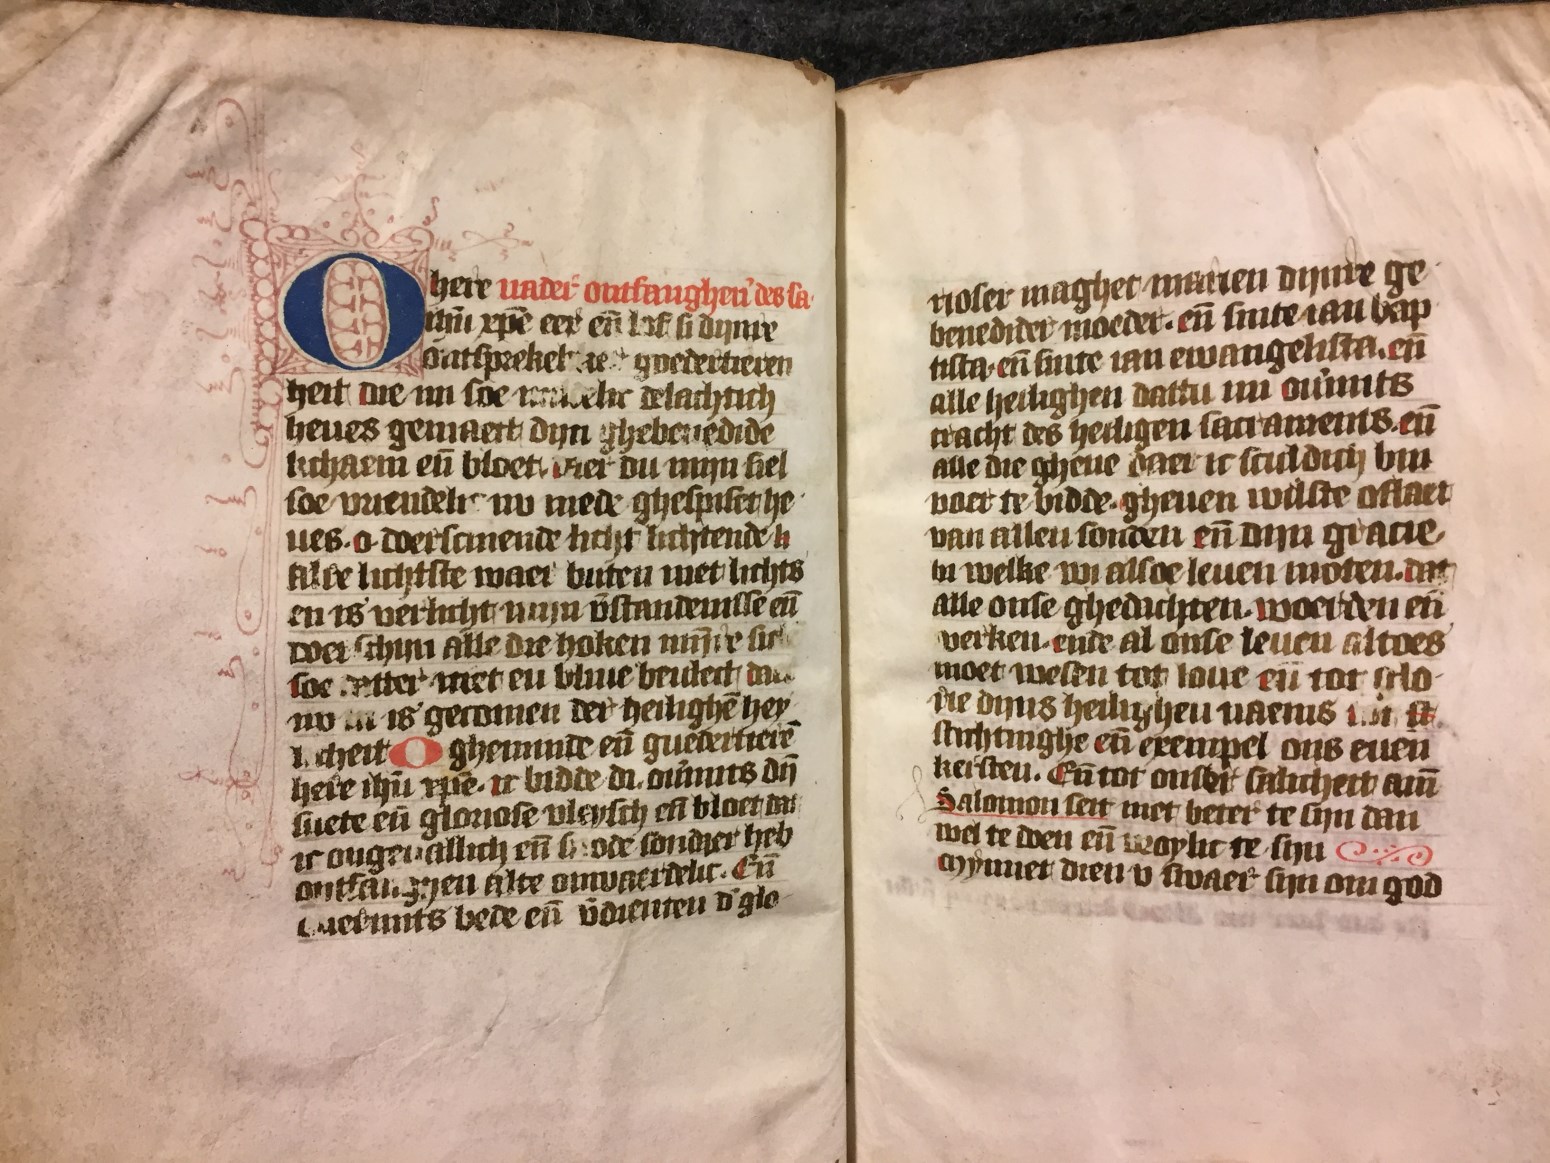 O here nader ontfanghen des sa
ihū xpē eer eñ lof si dijnre
goedertieren
heit die mi soe delachtich
heues gemaect dijn ghebenedide
lichaem eñ bloet. daer du mijn siel
soe vriendelic nv mede ghespiset he
ues. o doerscinende licht lichtende
alre lichtste waer buten niet lichts
en is verlicht mijn v̄standenisse eñ
doer schijn alle die hoken mijnre
soe niet en bliue besulect
nv is gecomen der heilighē hey
licheit O gheminde eñ guedertierē
here ihū xpē. ic bidde di. ou̾mits dij̄
suete eñ gloriose vleysch eñ bloet dat
ic ongeuallich eñ snode sondaer heb
ontfanghen alte onwaerdelic. Eñ
bede eñ v̄dienten d̾ glo
rioser maghet marien dijnre ge
benedider moeder. eñ sinte ian bap
tista. eñ sinte ian ewangelista. eñ
alle heilighen dattu mi ou̾mits
cracht des heiligen sacraments. eñ
alle die gheue daer ic sculdich bin
voer te bidde. gheuen wilste oflaet
van allen sonden eñ dijn gracie.
in welke wi alsoe leuen moten. dat
alle onse ghedachten. woerden eñ
werken. ende al onse leuen altoes
moet wesen tot loue eñ tot glo
rie dijns heilighen naems
stichtinghe eñ exempel ons euen
kersten. Eñ tot onser salicheit amē
Salomon seit niet beter te sijn dan
wel te doen eñ vroylic te sijn
Mynnet dien v swaer sijn om god